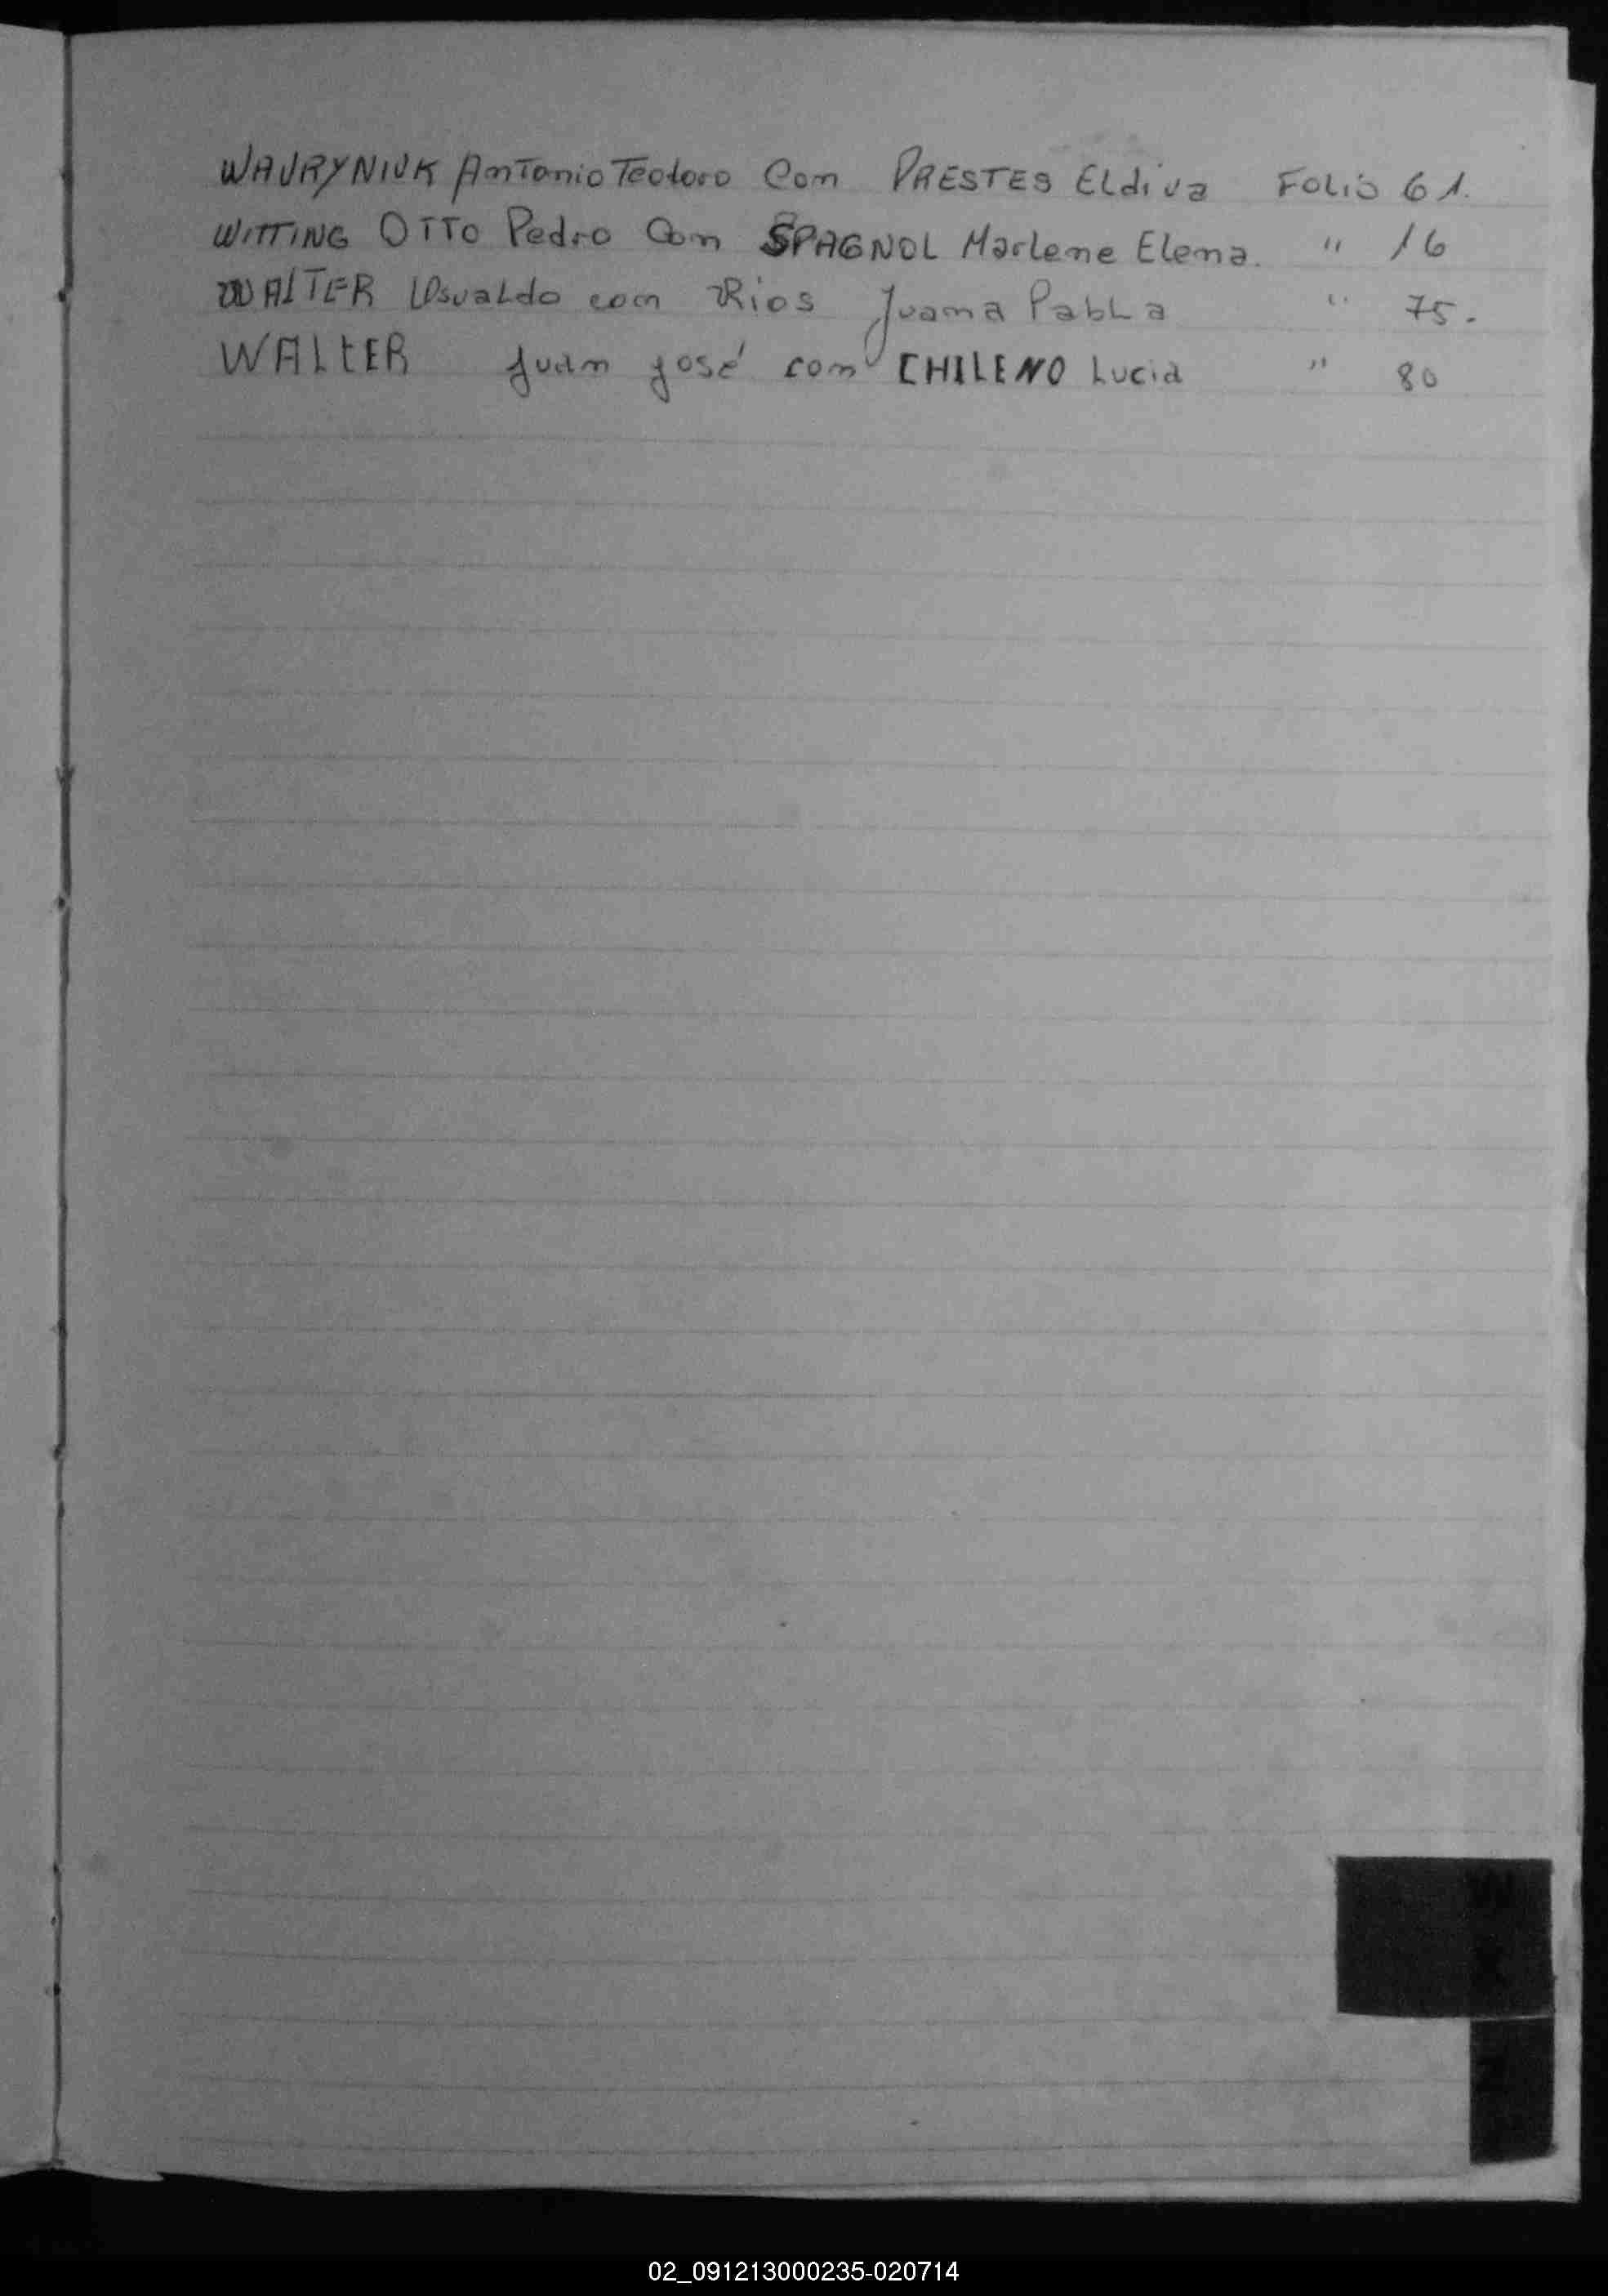 WAURYNIUK Antonio Teodoro Con PRESTES Eldiva Folio 61.
WITTING OTTO Pedro Con SPAGNOL Marlene Elena. " 16
WALTER Osvaldo con Rios Juana Pabla " 75.
WALtER Juan José con CHILENO Lucia " 80
W
Z
02_091213000235-020714